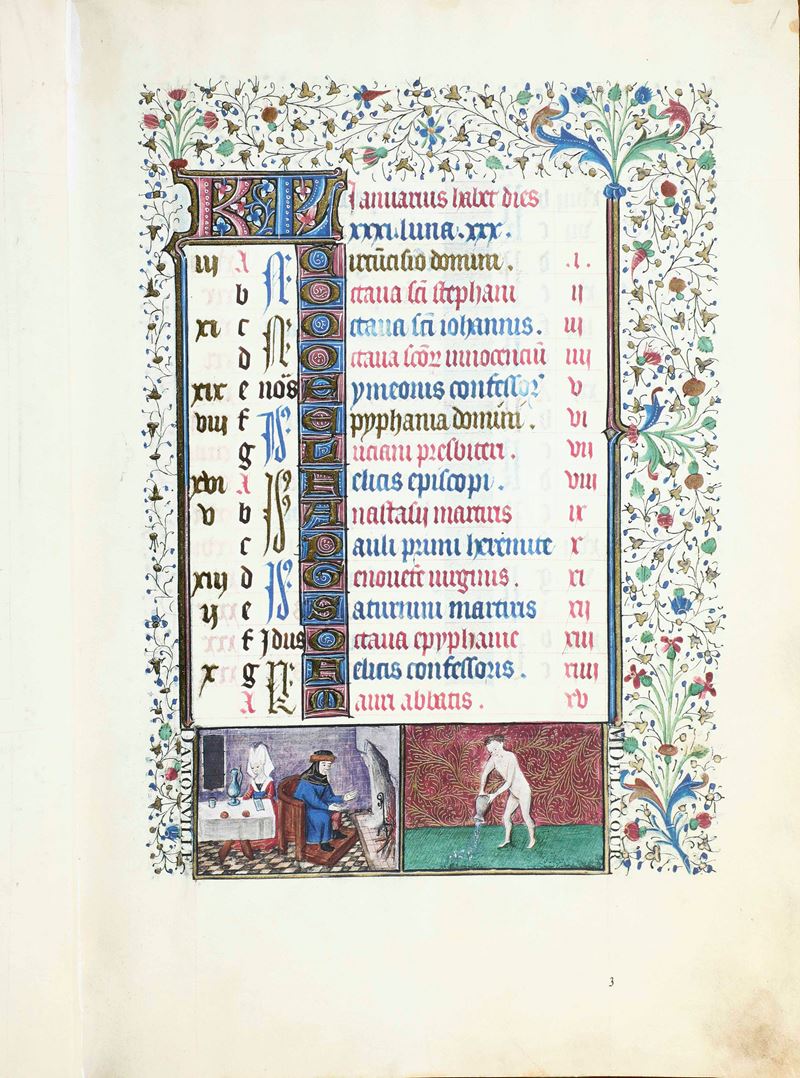 KL Januarius habet dies
xxxi. luna. xxx.
iij A N. Circũcisio domini. .i.
b Octaua sc̃i stephani ij
xi c N. Octaua sc̃i iohannis. iij
d Octaua sc̃oꝝ innocenciũ iiij
xix e nõs Symeonis confessor v
viij f Epyphania domini. vi
g Luciani presbiteri. vij
xvi A Felicis episcopi. viij
v b Anastasij martiris ix
c Pauli primi heremite x
xiij d Genouefe uirginis. xi
ij e Saturnini martiris xij
f Jdus Octaua epyphanie xiij
x g Felicis confessoris. xiiij
A Mauri abbatis. xv
DAMONVILLE
VIDELICOR
3